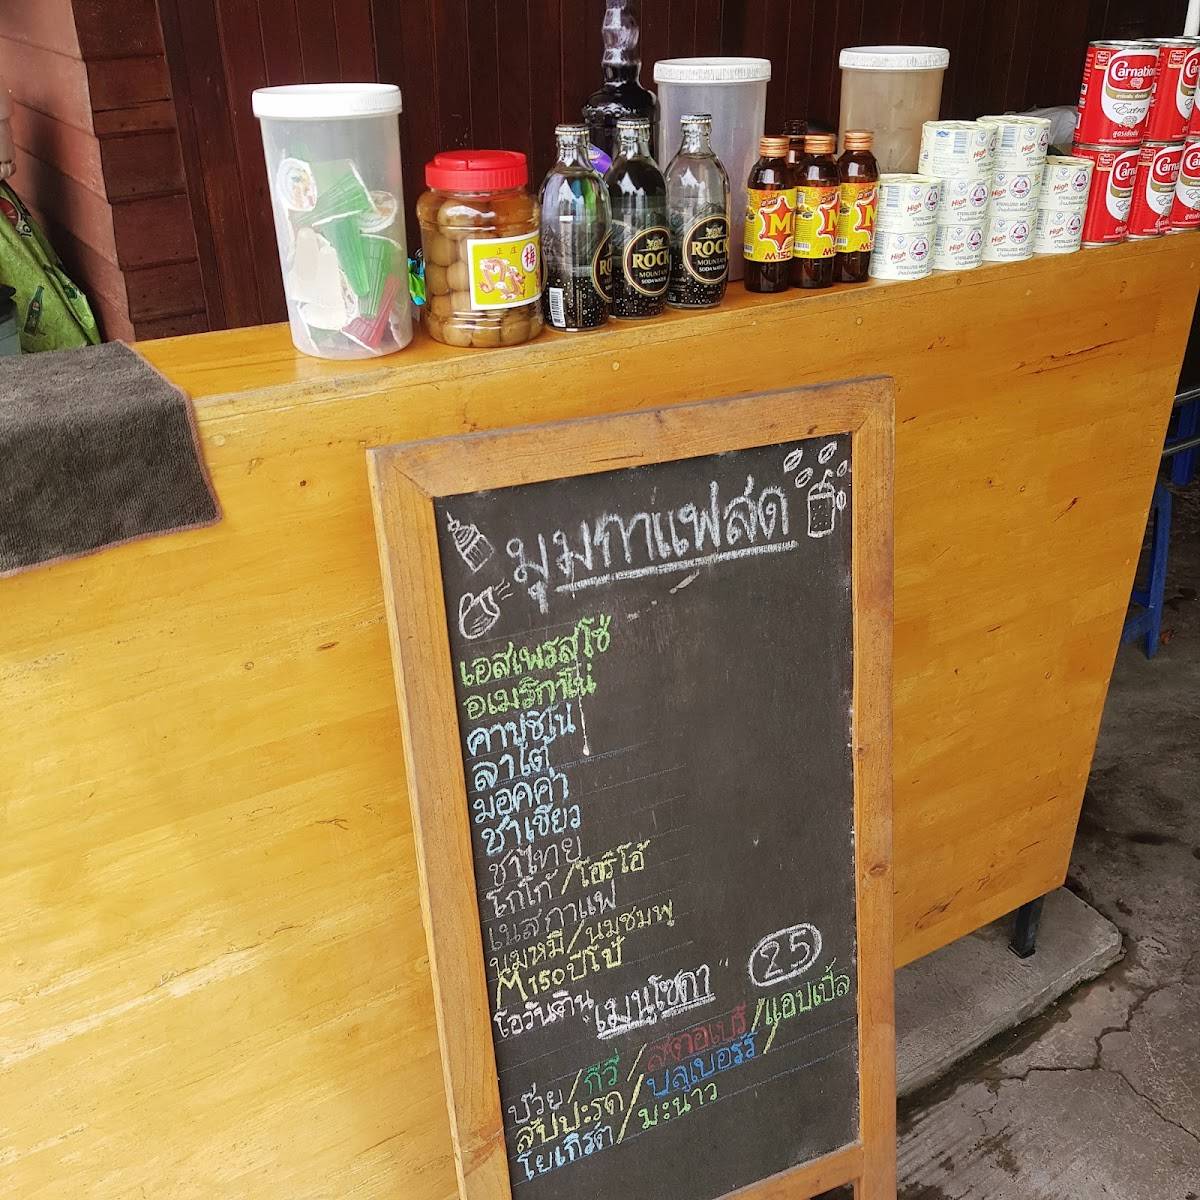 Carnation
Extra
สูตรเข้มข้น
正庄
梅
ROCK
MOUNTAIN
SODA WATER
ROCK
MOUNTAIN
SODA WATER
M
M-150
High
STERILIZED MILK
มุมกาแฟสด
เอสเพรสโซ่
อเมริกาโน่
คาปูชิโน่
ลาเต้
มอคค่า
ชาเขียว
ชาไทย
โกโก้/โอริโอ้
เนสกาแฟ
นมหมี/นมชมพู
M150 ปีโป้
โอวันติน
"เมนูโซดา" 25
บ๊วย/กีวี่/สตอเบรี่/แอปเปิ้ล
สัปปะรด/บลูเบอร์รี่/
โยเกิร์ต/มะนาว